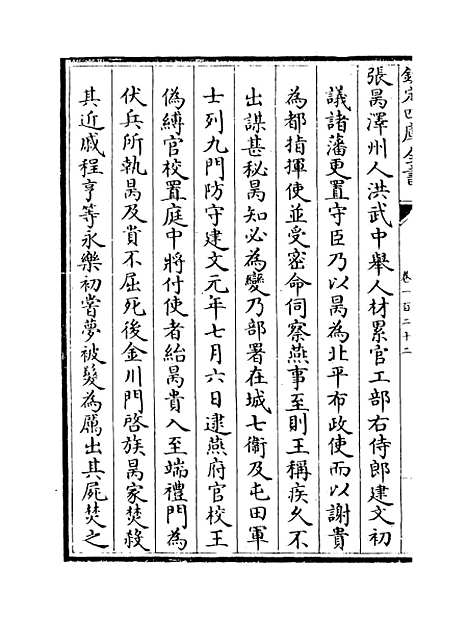 欽定四庫全書
卷一百二十二
張昺澤州人洪武中舉人材累官工部右侍郎建文初
議諸藩更置守臣乃以昺為北平布政使而以謝貴
為都指揮使並受密命伺察燕事至則王稱疾久不
出謀甚秘昺知必為變乃部署在城七衛及屯田軍
士列九門防守建文元年七月六日逮燕府官校王
偽縛官校置庭中將付使者紿昺貴入至端禮門為
伏兵所執昺及貴不屈死後金川門啓族昺家焚殺
其近戚程亨等永樂初嘗夢被髮為厲出其屍焚之